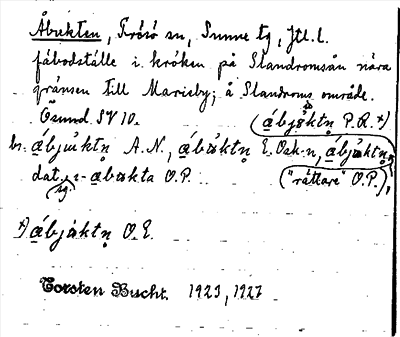 Åbukten, Frösö sn, Sunne tg, Jtl. l.
fäbodställe i kröken på Slandromsån nära
gränsen till Marieby; å Slandroms område.
Ösund SV 10. (a̲bjäktn̥ P.R. *)
br. a̲bjuktn̥ A.N., a̲bäktn̥ E.Osk-n, a̲bjäktn̥
dat. sg. ɪ- a̲bäkta O.P. ("rättare" O.P.),
*) a̲bjäktn̥ O.E.
Torsten Bucht. 1923, 1927